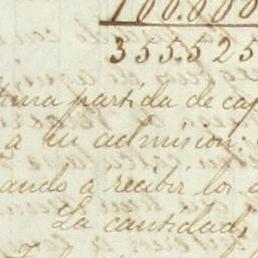 100.000
355.525
tima partida de caf
a su admision:
ando a recibir los
La cantidad,